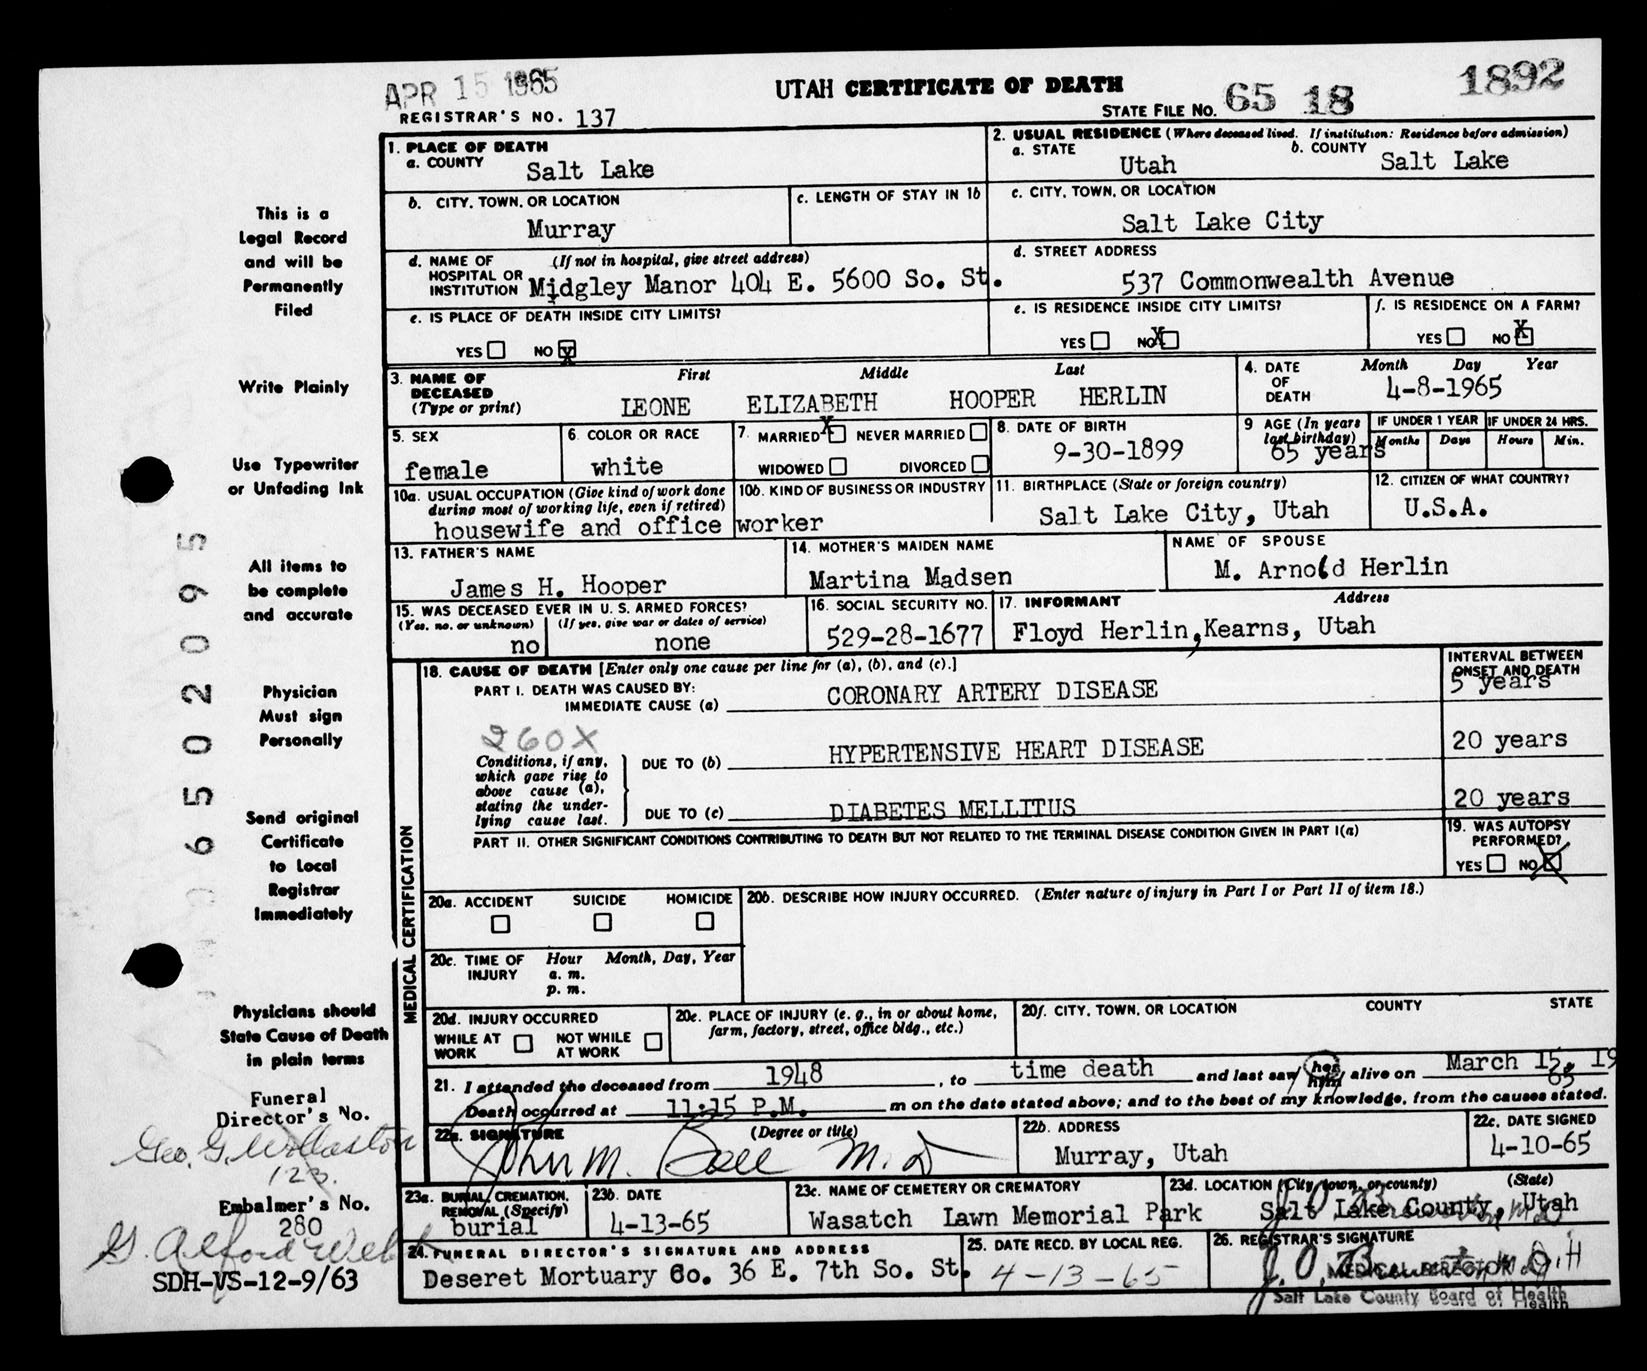 APR 15 1965
UTAH CERTIFICATE OF DEATH
1892
REGISTRAR'S NO. 137
STATE FILE NO. 65 18
1. PLACE OF DEATH
a. COUNTY Salt Lake
2. USUAL RESIDENCE (Where deceased lived. If institution: Residence before admission)
a. STATE Utah b. COUNTY Salt Lake
b. CITY, TOWN, OR LOCATION Murray
c. LENGTH OF STAY IN 1b
c. CITY, TOWN, OR LOCATION
Salt Lake City
d. NAME OF HOSPITAL OR INSTITUTION (If not in hospital, give street address)
Midgley Manor 404 E. 5600 So. St.
d. STREET ADDRESS
537 Commonwealth Avenue
e. IS PLACE OF DEATH INSIDE CITY LIMITS?
YES NO X
e. IS RESIDENCE INSIDE CITY LIMITS?
YES NO X
f. IS RESIDENCE ON A FARM?
YES NO X
3. NAME OF DECEASED (Type or print)
First Middle Last
LEONE ELIZABETH HOOPER HERLIN
4. DATE OF DEATH Month Day Year
4-8-1965
5. SEX
female
6. COLOR OR RACE
white
7. MARRIED X NEVER MARRIED
WIDOWED DIVORCED
8. DATE OF BIRTH
9-30-1899
9 AGE (In years last birthday)
65 years
IF UNDER 1 YEAR
Months Days
IF UNDER 24 HRS.
Hours Min.
10a. USUAL OCCUPATION (Give kind of work done during most of working life, even if retired)
10b. KIND OF BUSINESS OR INDUSTRY
housewife and office worker
11. BIRTHPLACE (State or foreign country)
Salt Lake City, Utah
12. CITIZEN OF WHAT COUNTRY?
U.S.A.
13. FATHER'S NAME
James H. Hooper
14. MOTHER'S MAIDEN NAME
Martina Madsen
NAME OF SPOUSE
M. Arnold Herlin
15. WAS DECEASED EVER IN U. S. ARMED FORCES?
(Yes, no, or unknown) (If yes, give war or dates of service)
no none
16. SOCIAL SECURITY NO.
529-28-1677
17. INFORMANT Address
Floyd Herlin, Kearns, Utah
MEDICAL CERTIFICATION
18. CAUSE OF DEATH [Enter only one cause per line for (a), (b), and (c).]
INTERVAL BETWEEN ONSET AND DEATH
PART I. DEATH WAS CAUSED BY:
IMMEDIATE CAUSE (a) CORONARY ARTERY DISEASE 5 years
260X
Conditions, if any, which gave rise to above cause (a), stating the underlying cause last.
DUE TO (b) HYPERTENSIVE HEART DISEASE 20 years
DUE TO (c) DIABETES MELLITUS 20 years
PART II. OTHER SIGNIFICANT CONDITIONS CONTRIBUTING TO DEATH BUT NOT RELATED TO THE TERMINAL DISEASE CONDITION GIVEN IN PART I(a)
19. WAS AUTOPSY PERFORMED?
YES NO X
20a. ACCIDENT SUICIDE HOMICIDE
20b. DESCRIBE HOW INJURY OCCURRED. (Enter nature of injury in Part I or Part II of item 18.)
20c. TIME OF INJURY Hour Month, Day, Year
a. m.
p. m.
20d. INJURY OCCURRED
WHILE AT WORK NOT WHILE AT WORK
20e. PLACE OF INJURY (e. g., in or about home, farm, factory, street, office bldg., etc.)
20f. CITY, TOWN, OR LOCATION COUNTY STATE
21. I attended the deceased from 1948, to time death and last saw her him alive on March 15, 19
65
Death occurred at 11:15 P.M. m on the date stated above; and to the best of my knowledge, from the causes stated.
22a. SIGNATURE (Degree or title)
John M. Ball M.D
22b. ADDRESS
Murray, Utah
22c. DATE SIGNED
4-10-65
23a. BURIAL, CREMATION, REMOVAL (Specify)
burial
23b. DATE
4-13-65
23c. NAME OF CEMETERY OR CREMATORY
Wasatch Lawn Memorial Park
23d. LOCATION (City, town, or county) (State)
Salt Lake County, Utah
24. FUNERAL DIRECTOR'S SIGNATURE AND ADDRESS
Deseret Mortuary Co. 36 E. 7th So. St.
25. DATE RECD. BY LOCAL REG.
4-13-65
26. REGISTRAR'S SIGNATURE
MEDICAL DIRECTOR
Salt Lake County Board of Health
This is a
Legal Record
and will be
Permanently
Filed
Write Plainly
Use Typewriter
or Unfading Ink
All items to
be complete
and accurate
Physician
Must sign
Personally
Send original
Certificate
to Local
Registrar
Immediately
Physicians should
State Cause of Death
in plain terms
Funeral
Director's No.
Geo. G. Wollaston
123
Embalmer's No.
280
G. Alford Webb
SDH-VS-12-9/63
6502095